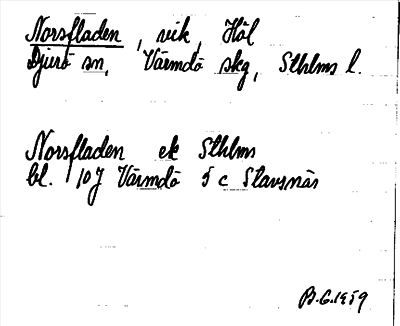 Norsfladen, vik, Hål
Djurö sn, Värmdö skg, Sthlms l.
Norsfladen ek Sthlms
bl. 10J Värmdö 5c Stavsnäs
B.G. 1959